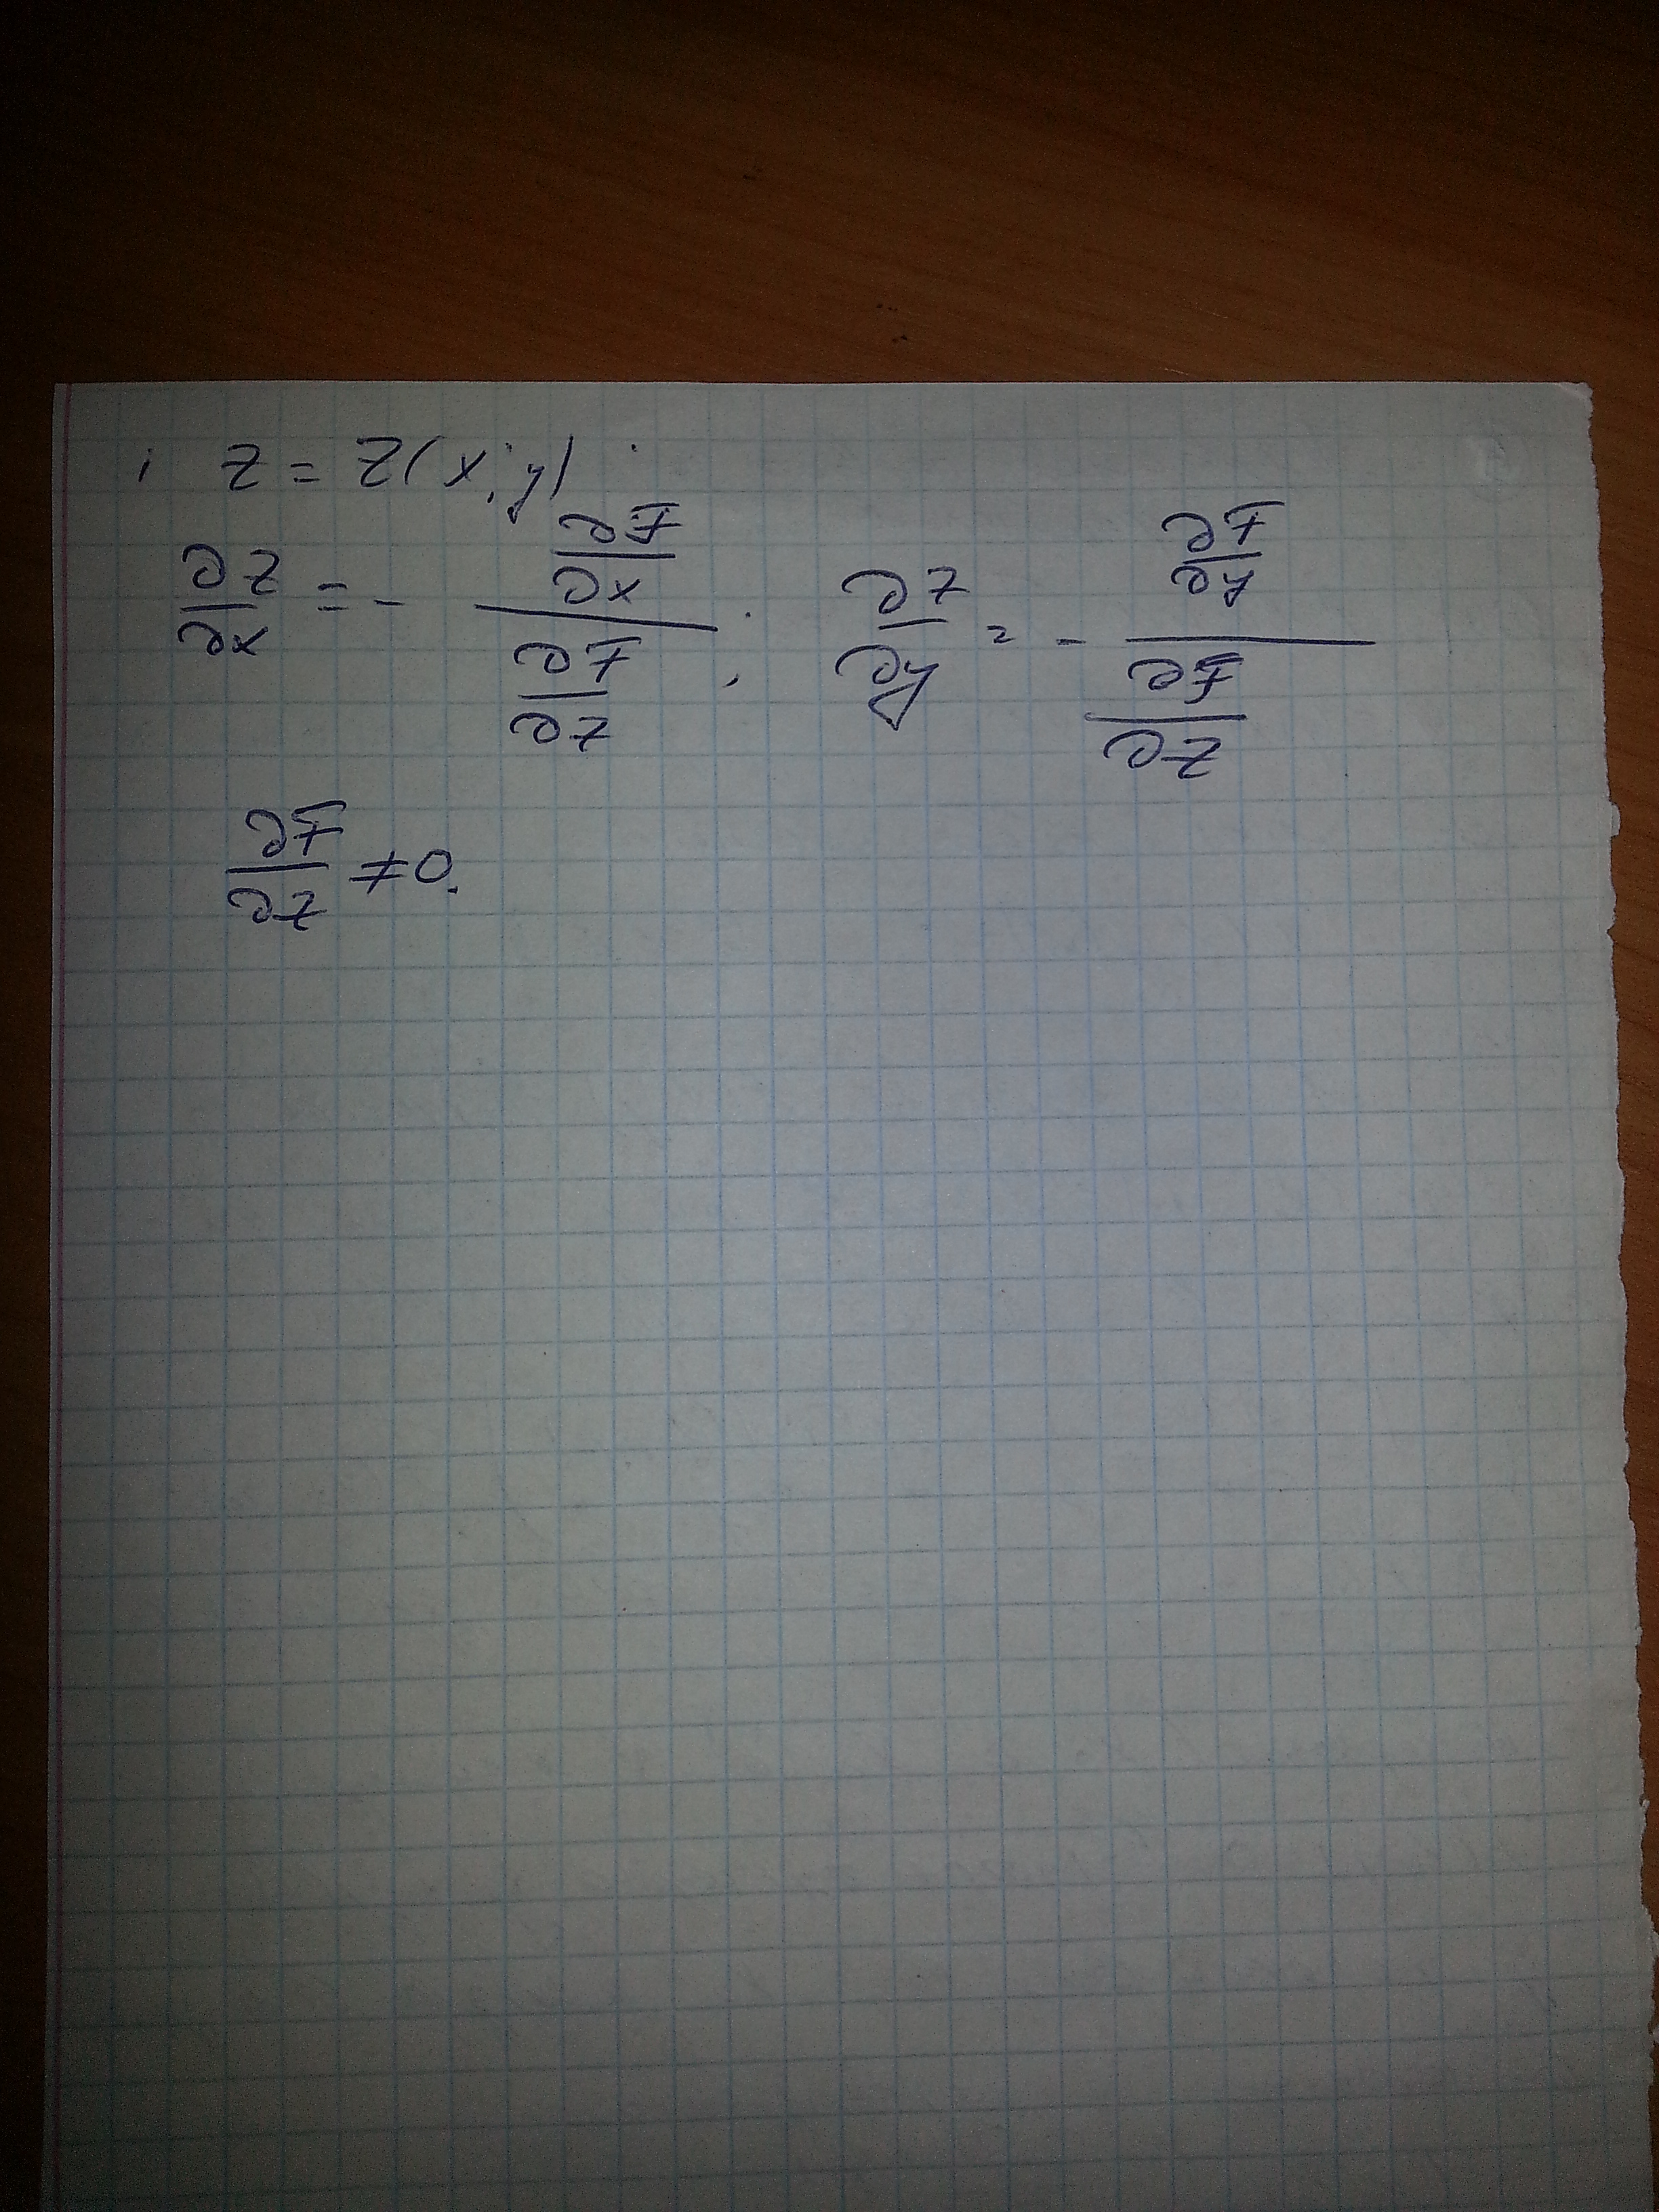 ; z = z(x, y)
∂z/∂x = - (∂F/∂x)/(∂F/∂z) ; ∂z/∂y = - (∂F/∂y)/(∂F/∂z)
∂F/∂z ≠ 0.